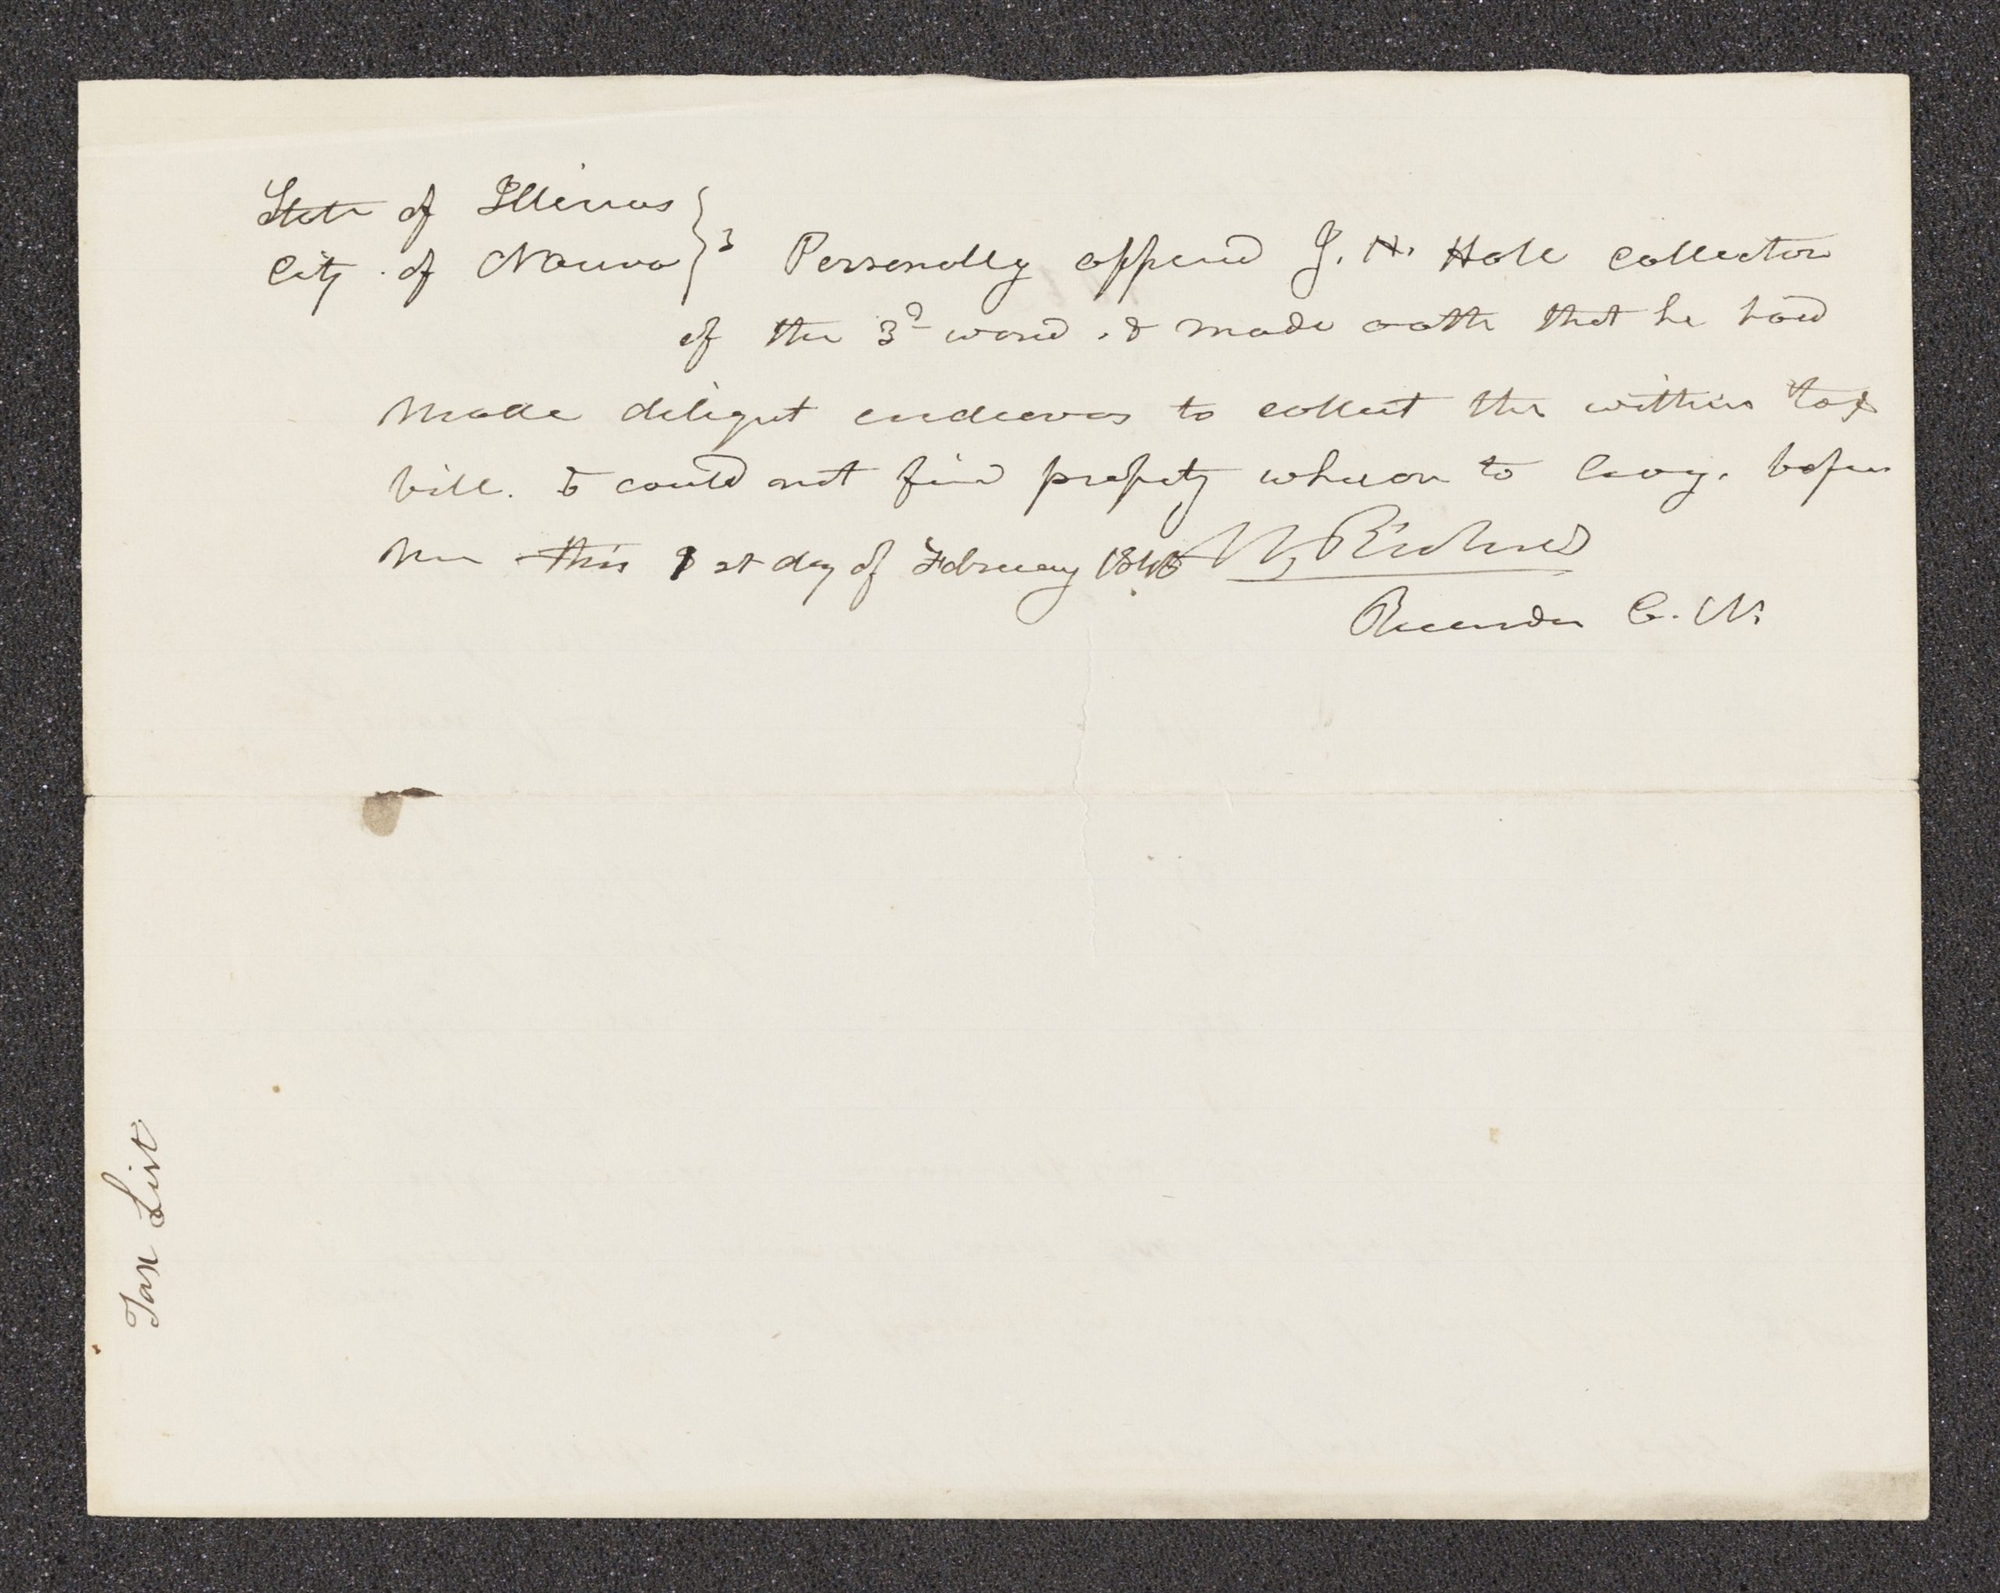 State of Illinois
City of Nauvoo } Personally appeard J. H. Hale collector
of the 3d ward, & made oath that he had
made diligent endeavors to collect the within tax
bill. & could not find property whereon to levy. before
me this 1st day of February 1845 W Richards
Recorder C. N.
Tax List